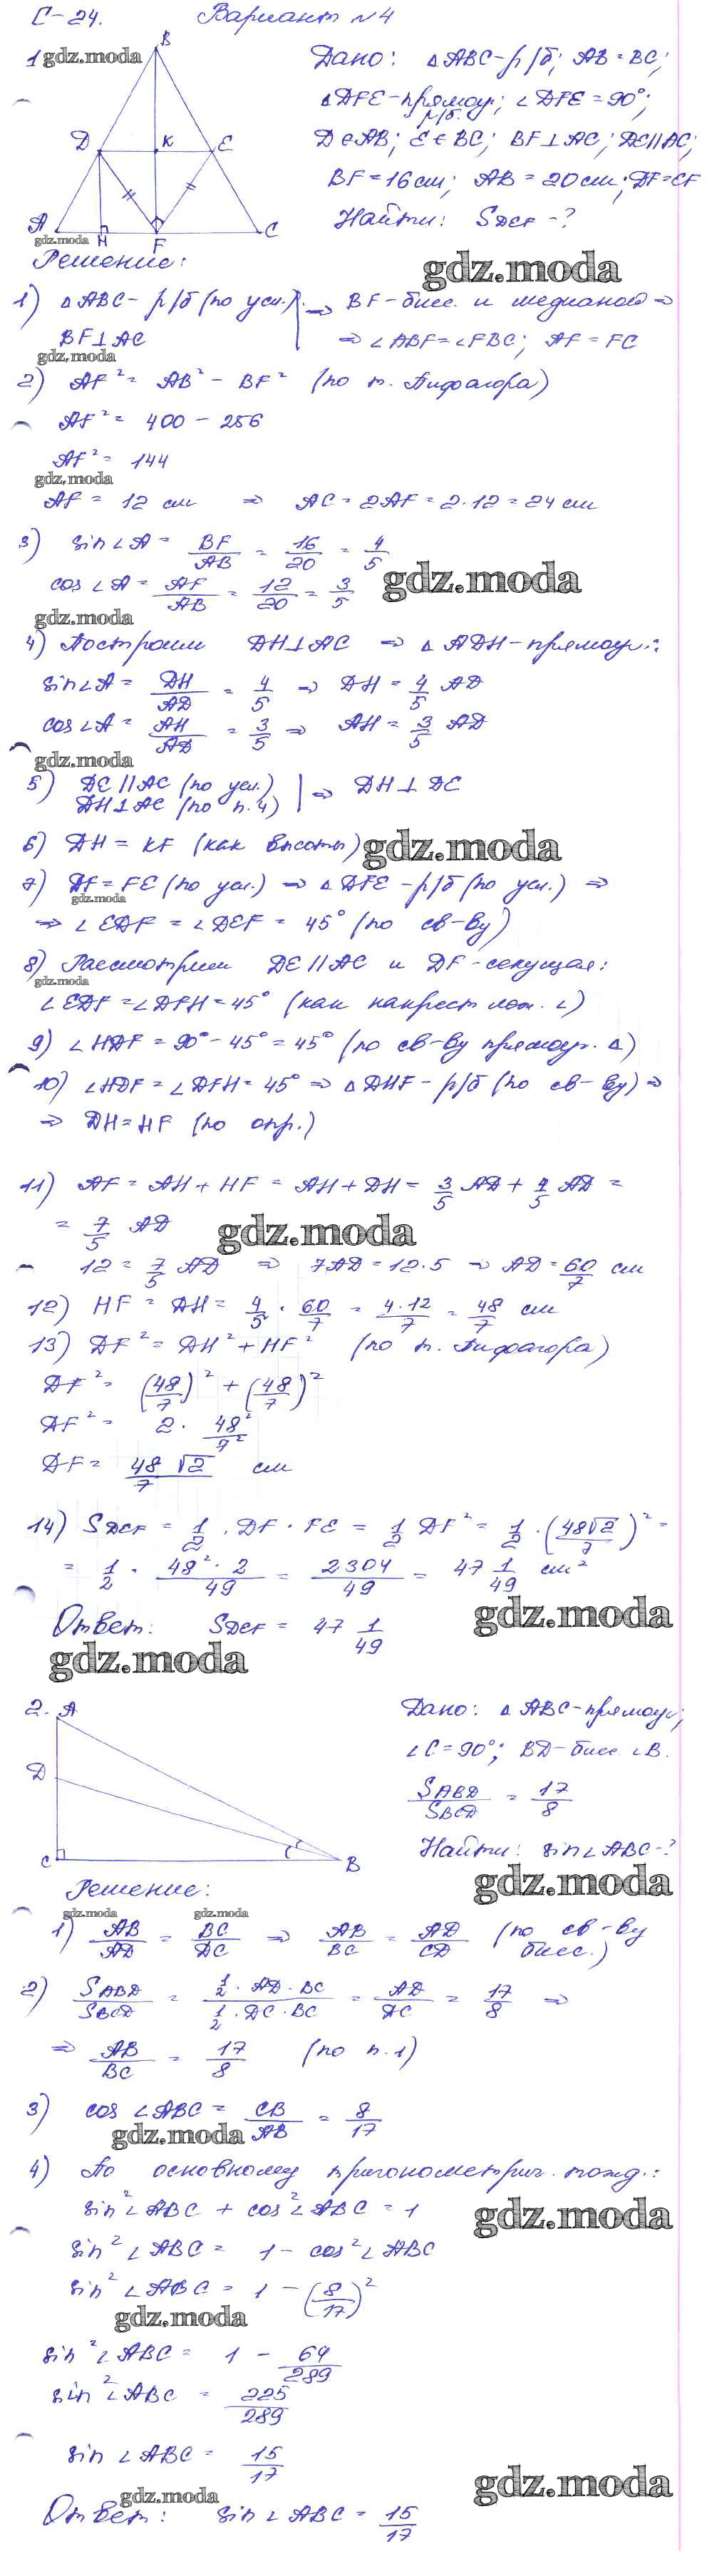 С-24. Вариант №4
1 gdz.moda
B
Дано: △ABC-р/б; AB=BC;
△DFE-прямоуг; ∠DFE=90°;
р/б.
D K E
D∈AB; E∈BC; BF⊥AC; DE∥AC;
BF=16см; AB=20см; DF=EF
A H F C
Найти: SDEF-?
gdz.moda
Решение:
gdz.moda
1) △ABC-р/б (по усл.) ⇒ BF-бисс. и медианой ⇒
BF⊥AC ⇒ ∠ABF=∠FBC; AF=FC
gdz.moda
2) AF²= AB²- BF² (по т. Пифагора)
AF²= 400-256
AF²= 144
gdz.moda
AF= 12 см ⇒ AC=2AF=2·12=24 см
3) sin∠A= BF/AB = 16/20 = 4/5
cos∠A= AF/AB = 12/20 = 3/5
gdz.moda
gdz.moda
4) Построим DH⊥AC ⇒ △ADH-прямоуг.:
sin∠A= DH/AD = 4/5 ⇒ DH= 4/5 AD
cos∠A= AH/AD = 3/5 ⇒ AH= 3/5 AD
gdz.moda
5) DE∥AC (по усл.) ⇒ DH⊥DE
DH⊥AC (по п.4)
6) DH=KF (как высоты)
gdz.moda
7) DF=FE (по усл.) ⇒ △DFE-р/б (по усл.) ⇒
gdz.moda
⇒ ∠EDF=∠DEF=45° (по св-ву)
8) Рассмотрим DE∥AC и DF-секущая:
gdz.moda
∠EDF=∠DFH=45° (как накрест леж. ∠)
9) ∠HDF=90°-45°=45° (по св-ву прямоуг. △)
10) ∠HDF=∠DFH=45° ⇒ △DHF-р/б (по св-ву) ⇒
⇒ DH=HF (по опр.)
11) AF=AH+HF=AH+DH= 3/5 AD+ 4/5 AD=
= 7/5 AD
gdz.moda
12= 7/5 AD ⇒ 7AD=12·5 ⇒ AD= 60/7 см
12) HF=DH= 4/5 · 60/7 = 4·12/7 = 48/7 см
13) DF²=DH²+HF² (по т. Пифагора)
DF²= (48/7)²+(48/7)²
DF²= 2· 48²/7²
DF= 48√2/7 см
14) SDEF= 1/2 ·DF·FE= 1/2 DF²= 1/2 ·(48√2/7)²=
= 1/2 · 48²·2/49 = 2304/49 = 47 1/49 см²
Ответ: SDEF= 47 1/49
gdz.moda
gdz.moda
2. A
Дано: △ABC-прямоуг;
D
∠C=90°; BD-бисс. ∠B.
SABD/SBCD = 17/8
C B
Найти: sin∠ABC-?
gdz.moda
Решение:
gdz.moda gdz.moda
1) AB/AD = BC/DC ⇒ AB/BC = AD/CD (по св-ву бисс.)
2) SABD/SBCD = 1/2·AD·BC / 1/2·DC·BC = AD/DC = 17/8 ⇒
⇒ AB/BC = 17/8 (по п.1)
3) cos∠ABC= CB/AB = 8/17
gdz.moda
4) По основному тригонометрич. тожд.:
sin²∠ABC+cos²∠ABC=1
gdz.moda
sin²∠ABC= 1-cos²∠ABC
sin²∠ABC= 1-(8/17)²
gdz.moda
sin²∠ABC= 1- 64/289
sin²∠ABC= 225/289
sin∠ABC= 15/17
gdz.moda
gdz.moda
Ответ: sin∠ABC= 15/17